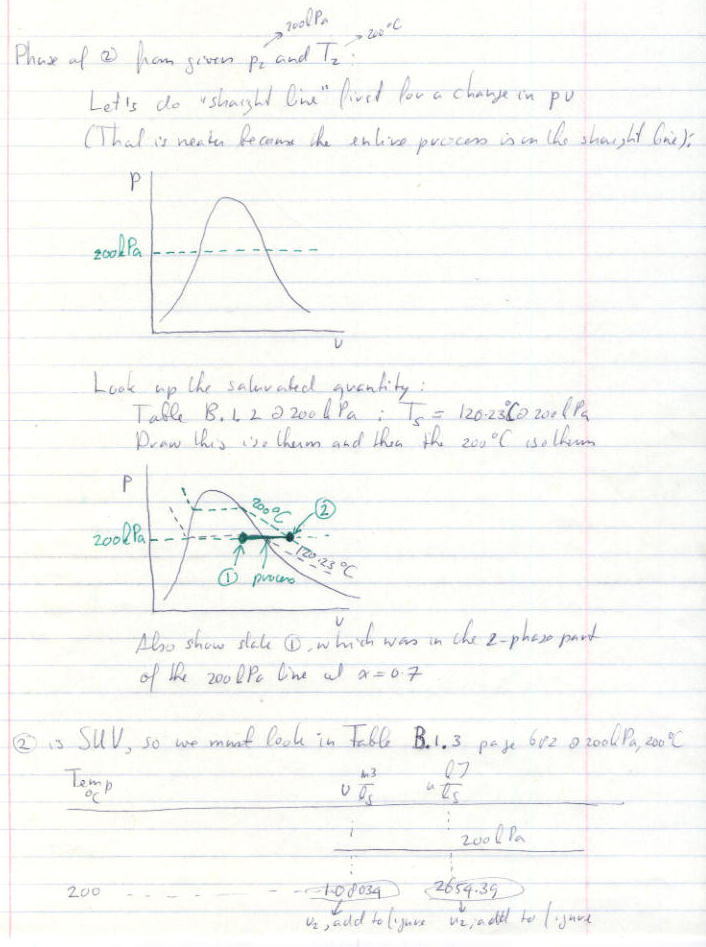 200kPa
200°C
Phase of ② from given p₂ and T₂ :
Let's do "straight line" first for a change in pv
(That is neater because the entire process is on the straight line):
P
200kPa
v
Look up the saturated quantity :
Table B.1.2 @ 200kPa : Ts = 120.23°C @ 200kPa
Draw this isotherm and then the 200°C isotherm
P
200°C
②
200kPa
120.23°C
① process
v
Also show state ①, which was in the 2-phase part
of the 200kPa line at x = 0.7
② is SUV, so we must look in Table B.1.3 page 682 @ 200kPa, 200°C
Temp °C v m3/kg u kJ/kg
200kPa
200 1.08034 2654.39
v₂, add to figure u₂, add to figure